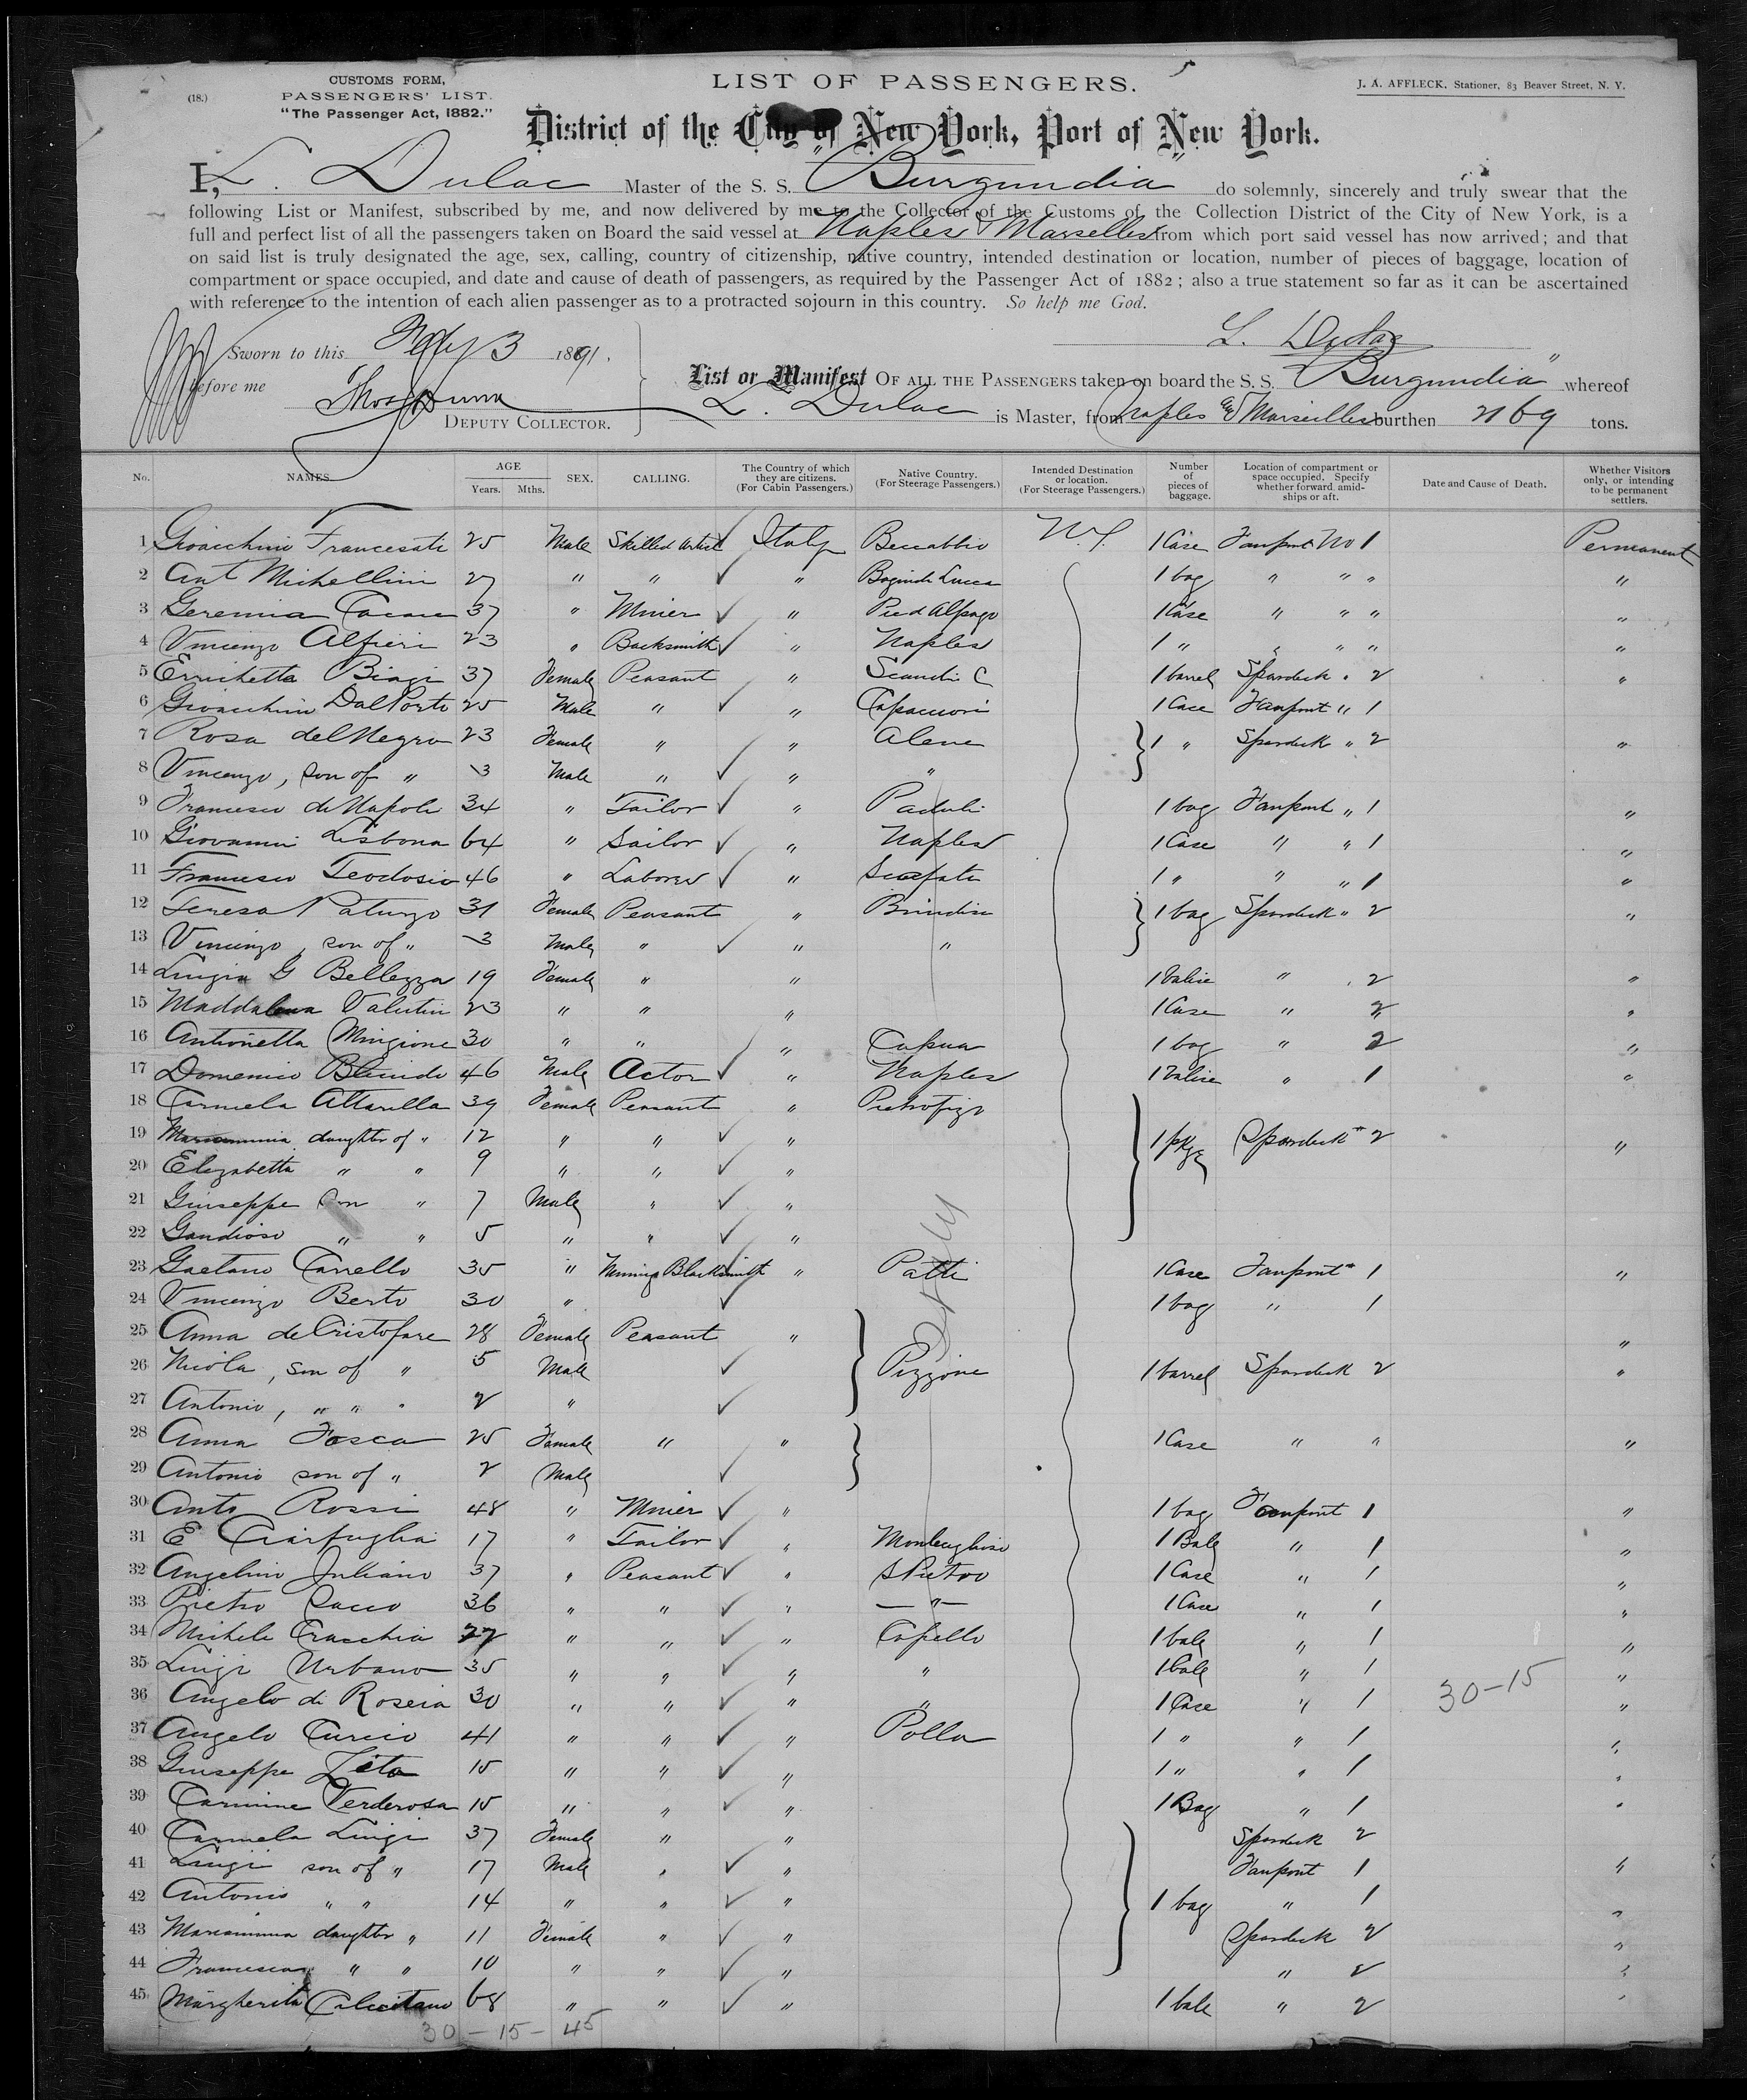 5
(18.)
CUSTOMS FORM,
PASSENGERS' LIST.
"The Passenger Act, 1882."
LIST OF PASSENGERS.
J. A. AFFLECK, Stationer, 83 Beaver Street, N. Y.
District of the City of New York, Port of New York.
I, L. Dulac Master of the S. S. "Burgundia" do solemnly, sincerely and truly swear that the
following List or Manifest, subscribed by me, and now delivered by me to the Collector of the Customs of the Collection District of the City of New York, is a
full and perfect list of all the passengers taken on Board the said vessel at Naples & Marselles from which port said vessel has now arrived; and that
on said list is truly designated the age, sex, calling, country of citizenship, native country, intended destination or location, number of pieces of baggage, location of
compartment or space occupied, and date and cause of death of passengers, as required by the Passenger Act of 1882; also a true statement so far as it can be ascertained
with reference to the intention of each alien passenger as to a protracted sojourn in this country. So help me God.
L. Dulac
Sworn to this Feby 3 1891.
before me
Thos Dunn
DEPUTY COLLECTOR.
List or Manifest OF ALL THE PASSENGERS taken on board the S. S. Burgundia" whereof
L. Dulac is Master, from Naples and Marseilles burthen 2169 tons.
No. NAMES. AGE Years. Mths. SEX. CALLING. The Country of which they are citizens. (For Cabin Passengers.) Native Country. (For Steerage Passengers.) Intended Destination or location. (For Steerage Passengers.) Number of pieces of baggage. Location of compartment or space occupied. Specify whether forward, amidships or aft. Date and Cause of Death. Whether Visitors only, or intending to be permanent settlers.
1 Gioacchino Francesati 25 Male Skilled Artist Italy Beccabbio N.Y. 1 Case No 1 Permanent
2 Ant Michellini 27 " " " 1 bag " " " "
3 Geremia 37 " Minier " Pied Alpago 1 Case " " " "
4 Vincenzo Alfieri 23 " Backsmith " Naples 1 " " " " "
5 Errichetta Biagi 37 Female Peasant " 1 barrel Spardeck " 2 "
6 Gioacchino Dal Porto 25 Male " " Capannori 1 Case " 1
7 Rosa del Negro 23 Female " " Alene 1 " Spardeck " 2 "
8 Vincenzo, son of " 3 Male " " "
9 Francesco di Napoli 34 " Tailor " Paduli 1 bag " 1 "
10 Giovanni Lisbona 64 " Sailor " Naples 1 Case " " 1 "
11 Francesco Teodosio 46 " Laborer " Scafati 1 " " " 1 "
12 Teresa Paturzo 31 Female Peasant " Brindisi 1 bag Spardeck " 2 "
13 Vincenzo, son of " 3 Male " " "
14 Luigia G Bellezza 19 Female " " 1 Valise " 2 "
15 Maddalena Valutin 23 " " " 1 Case " 2 "
16 Antonetta Mingione 30 " " " Capua 1 bag " 2 "
17 Domenico 46 Male Actor " Naples 1 Valise " 1 "
18 Carmela Altarella 39 Female Peasant "
19 daughter of " 12 " " " 1 pkge Spardeck " 2 "
20 Elizabetta " " 9 " " "
21 Giuseppe Son " 7 Male " "
22 Gaudioso " " 5 " " "
23 Gaetano Carrello 35 " Blacksmith " Patti 1 Case " 1 "
24 Vincenzo Berto 30 " 1 bag " 1
25 Anna de Cristofare 28 Female Peasant " "
26 Nicola, son of " 5 Male Pizzone 1 barrel Spardeck 2 "
27 Antonio, " " " 2 "
28 Anna Fosca 25 Female " " 1 Case " " "
29 Antonio son of " 2 Male
30 Anto Rossi 48 " Minier " 1 bag 1 "
31 E Ciarfuglia 17 " Tailor " 1 Bale " 1 "
32 Angelino Juliano 37 " Peasant " S Pietro 1 Case " 1 "
33 Pietro Sacco 36 " " " — " — 1 Case " 1 "
34 Michele Cracchia " " " Capello 1 bale " 1 "
35 Luigi Urbano 35 " " " " 1 bale " 1 "
36 Angelo di Roseia 30 " " " " 1 Case " 1 30-15 "
37 Angelo Curcio 41 " " " Polla 1 " " 1 "
38 Giuseppe Zito 15 " " " 1 " " 1 "
39 Carmine Verderosa 15 " " " 1 Bag " 1 "
40 Carmela Luigi 37 Female " " Spardeck 2
41 Luigi son of " 17 Male " " 1 "
42 Antonio " " 14 " " " 1 bag " 1 "
43 Mariannina daughter " 11 Female " " Spardeck 2 "
44 Francesca " " 10 " " " " 2 "
45 Margherita 68 " " " 1 bale " 2 "
30 - 15 - 45